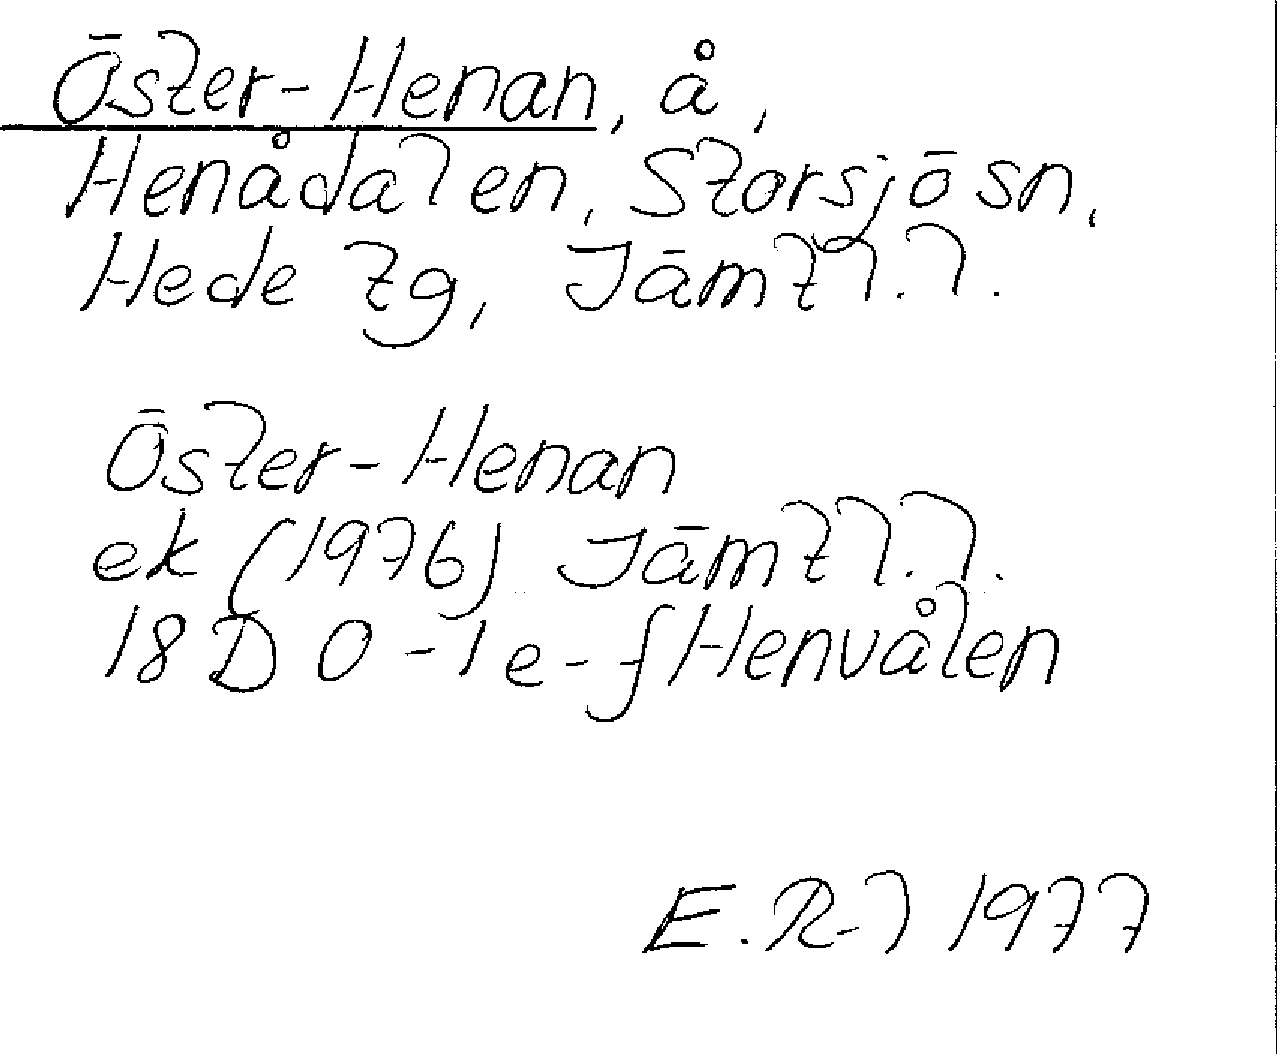 Öster-Henan, å,
Henådalen, Storsjö sn,
Hede tg, Jämtl. l.
Öster-Henan
ek (1976) Jämtl. l.
18 D 0-1 e-f Henvålen
E.R-l 1977